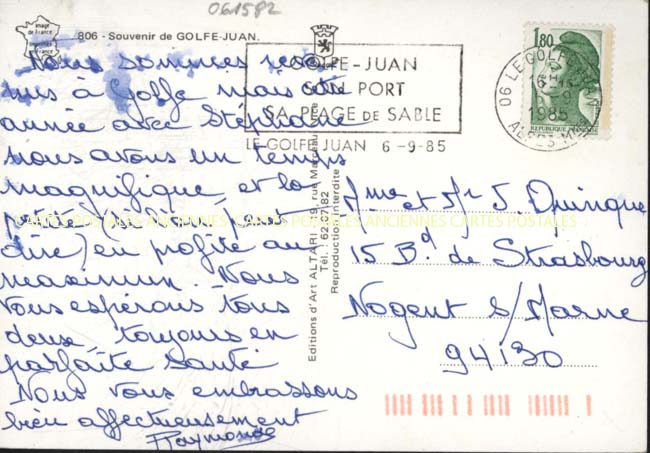 061582
image de France
806 - Souvenir de GOLFE-JUAN.
Nous sommes
mis à Golfe mais cette
année avec Stéphanie
nous avons un temps
magnifique, et la
petite (si l'on peut
dire) en profite au
maximum. Nous
vous espérons tous
deux toujours en
parfaite santé
Nous vous embrassons
bien affectueusement
Raymonde
Editions d'Art ALTARI - 19, rue Marceau
Tél. : 62.97.82
Reproduction interdite
GOLFE-JUAN
SON PORT
SA PLAGE DE SABLE
LE GOLFE JUAN 6-9-85
1,80
REPUBLIQUE FRANÇAISE
06 LE GOLFE JUAN
1985
ALPES MMES
Mme et Mr J. Quinque
15 Bd de Strasbourg
Nogent s/Marne
94130
CARTES POSTALES ANCIENNES CARTES POSTALES ANCIENNES CARTES POSTALES